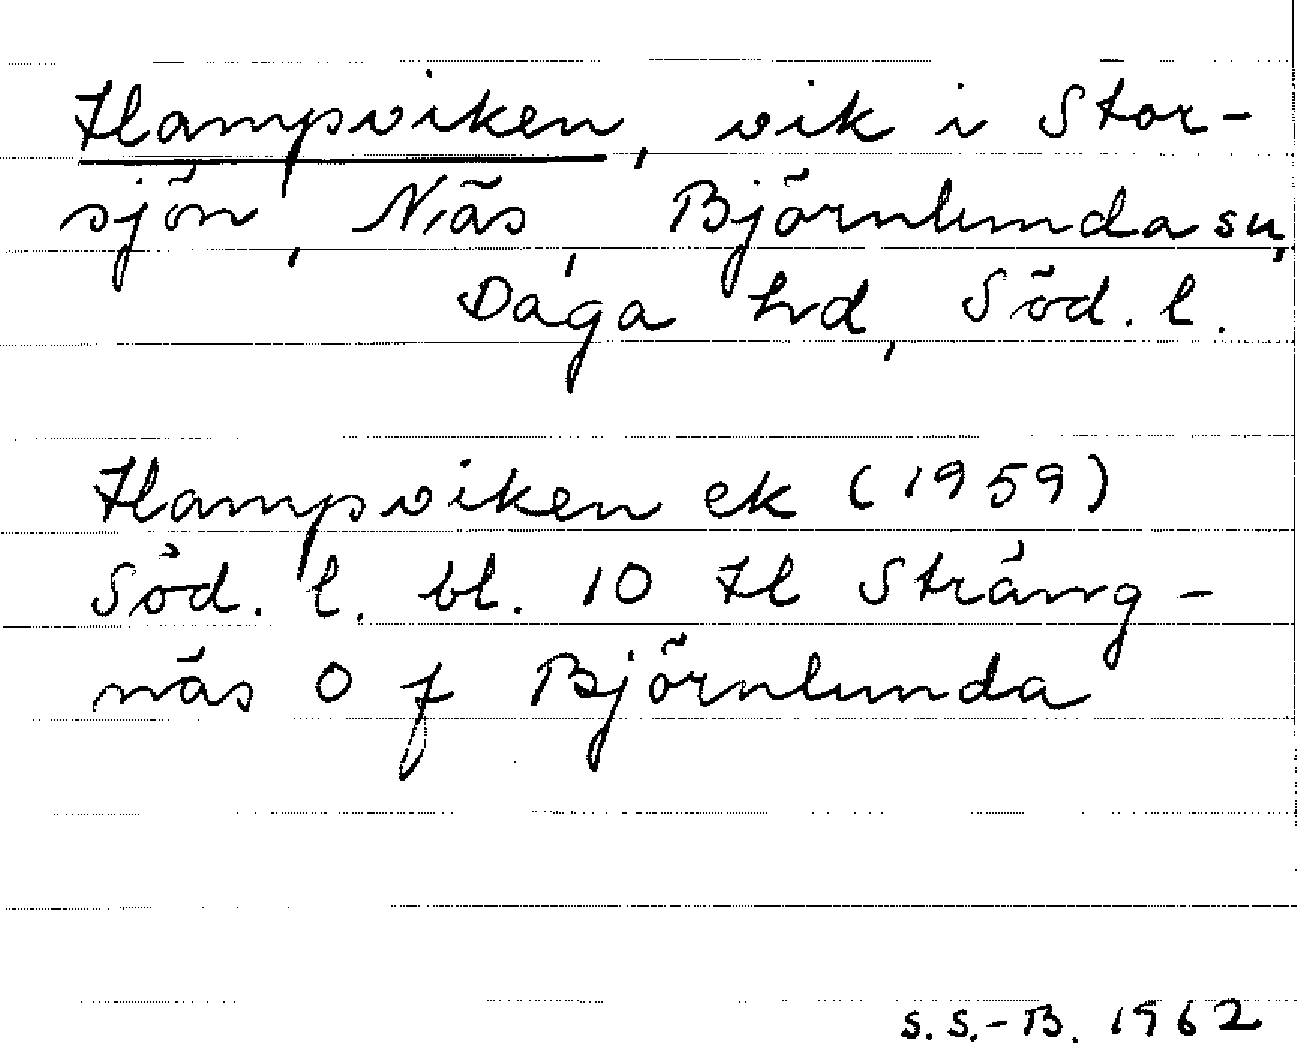 Hampviken, vik i Stor-
sjön, Näs, Björnlunda sn,
Daga hd, Söd. l.
Hampviken ek (1959)
Söd. l. bl. 10 H Sträng-
näs O f Björnlunda
S. S.-B. 1962